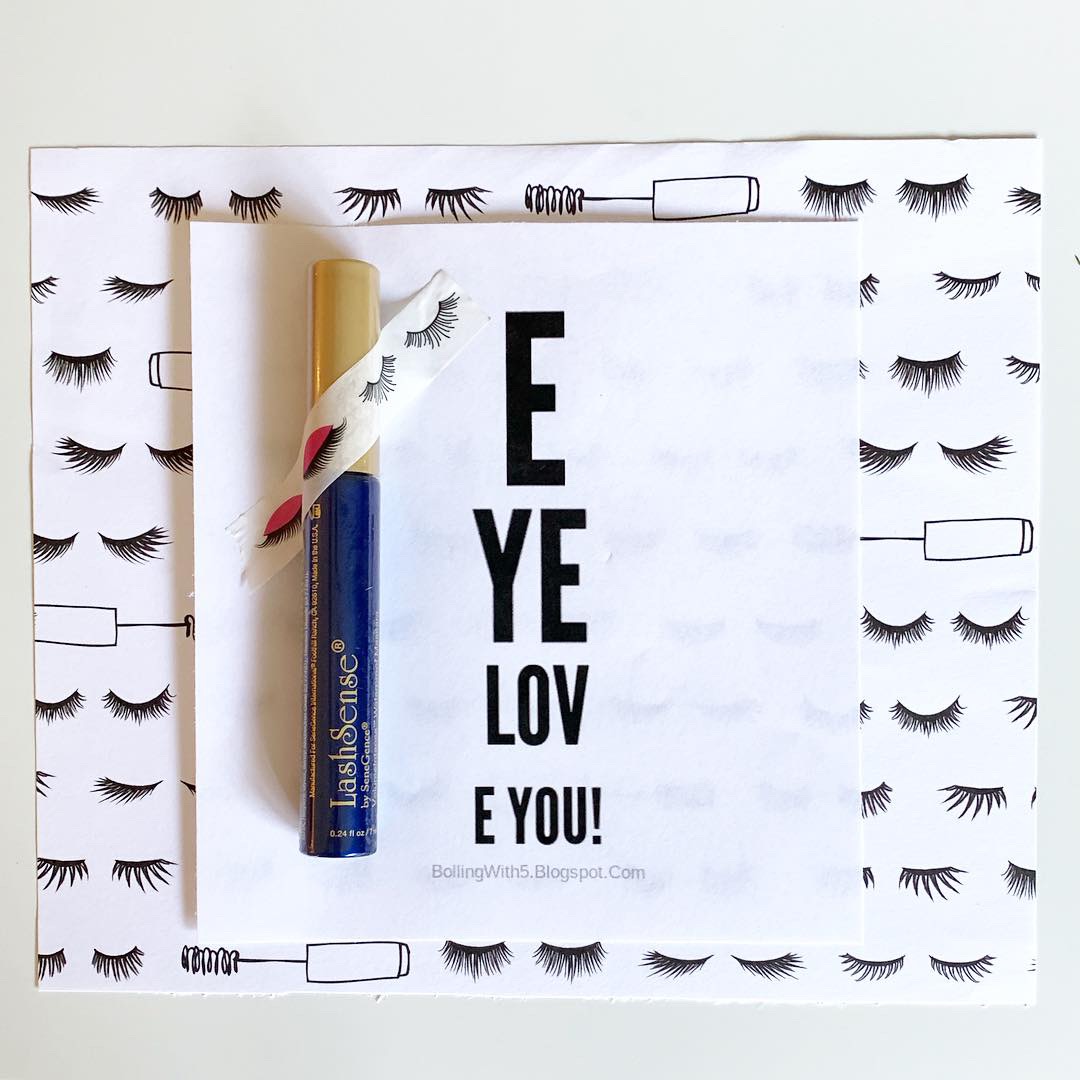 E
YE
LOV
E YOU!
BollingWith5.Blogspot.Com
LashSense®
by SeneGence®
0.24 fl oz / 7
Manufactured For SeneGence International® Foothill Ranch, CA 92610, Made in the U.S.A.